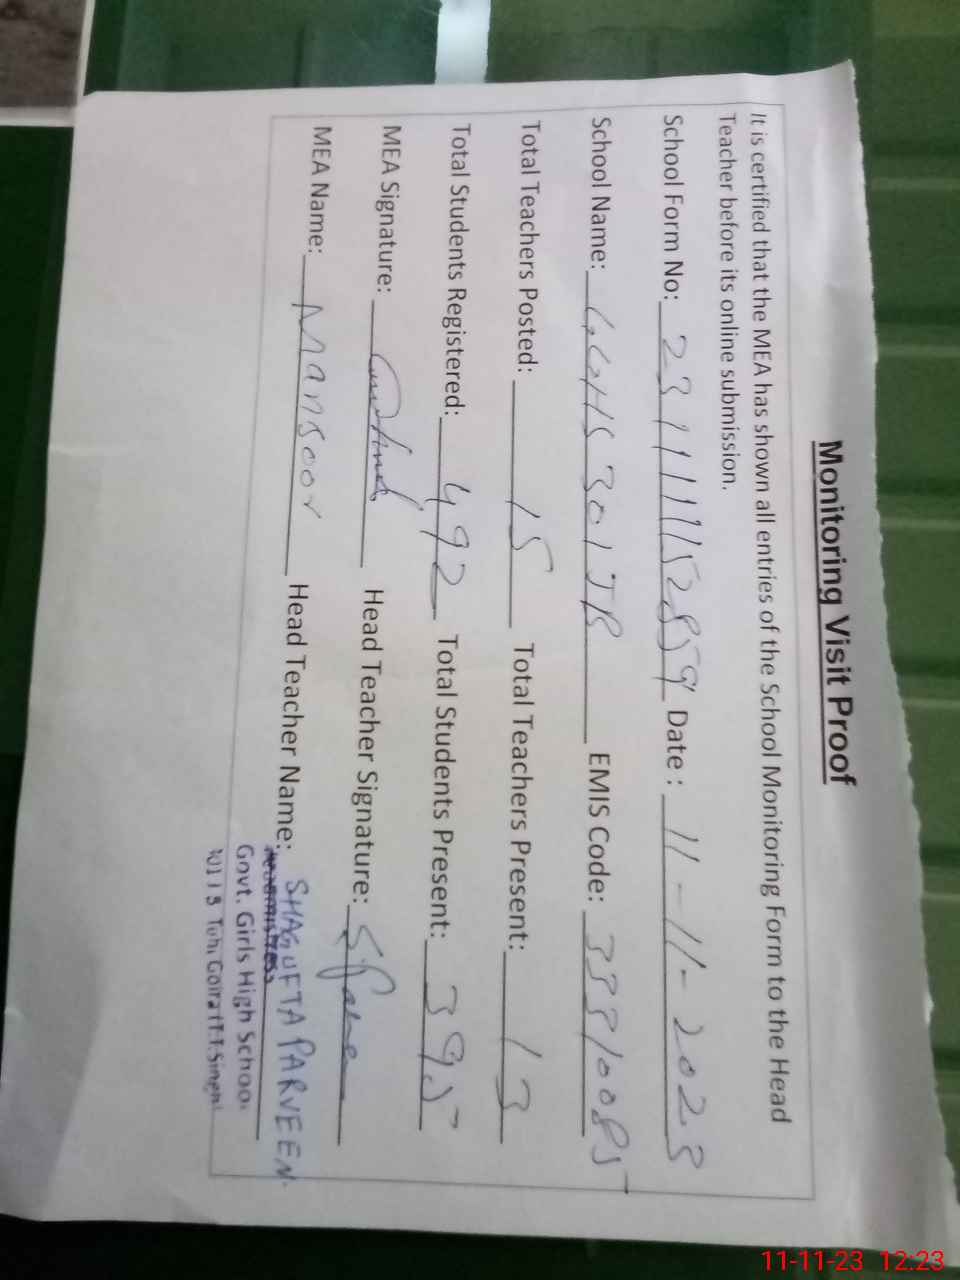 Monitoring Visit Proof
It is certified that the MEA has shown all entries of the School Monitoring Form to the Head
Teacher before its online submission.
School Form No: 231111152859 Date : 11-11-2023
School Name: GGHS 301 JB EMIS Code: 33310085
Total Teachers Posted: 15 Total Teachers Present: 13
Total Students Registered: 492 Total Students Present: 395
MEA Signature: Head Teacher Signature:
MEA Name: Mansoor Head Teacher Name: SHAGUFTA PARVEEN
Govt. Girls High School
11-11-23 12:23